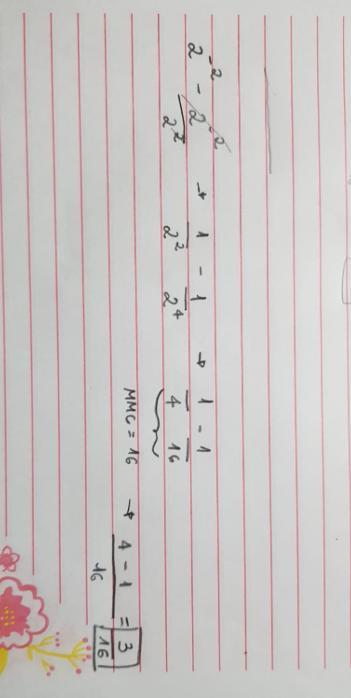 2⁻² - 2⁻²/2² → 1/2² - 1/2⁴ → 1/4 - 1/16
MMC = 16 → 4 - 1/16 = 3/16